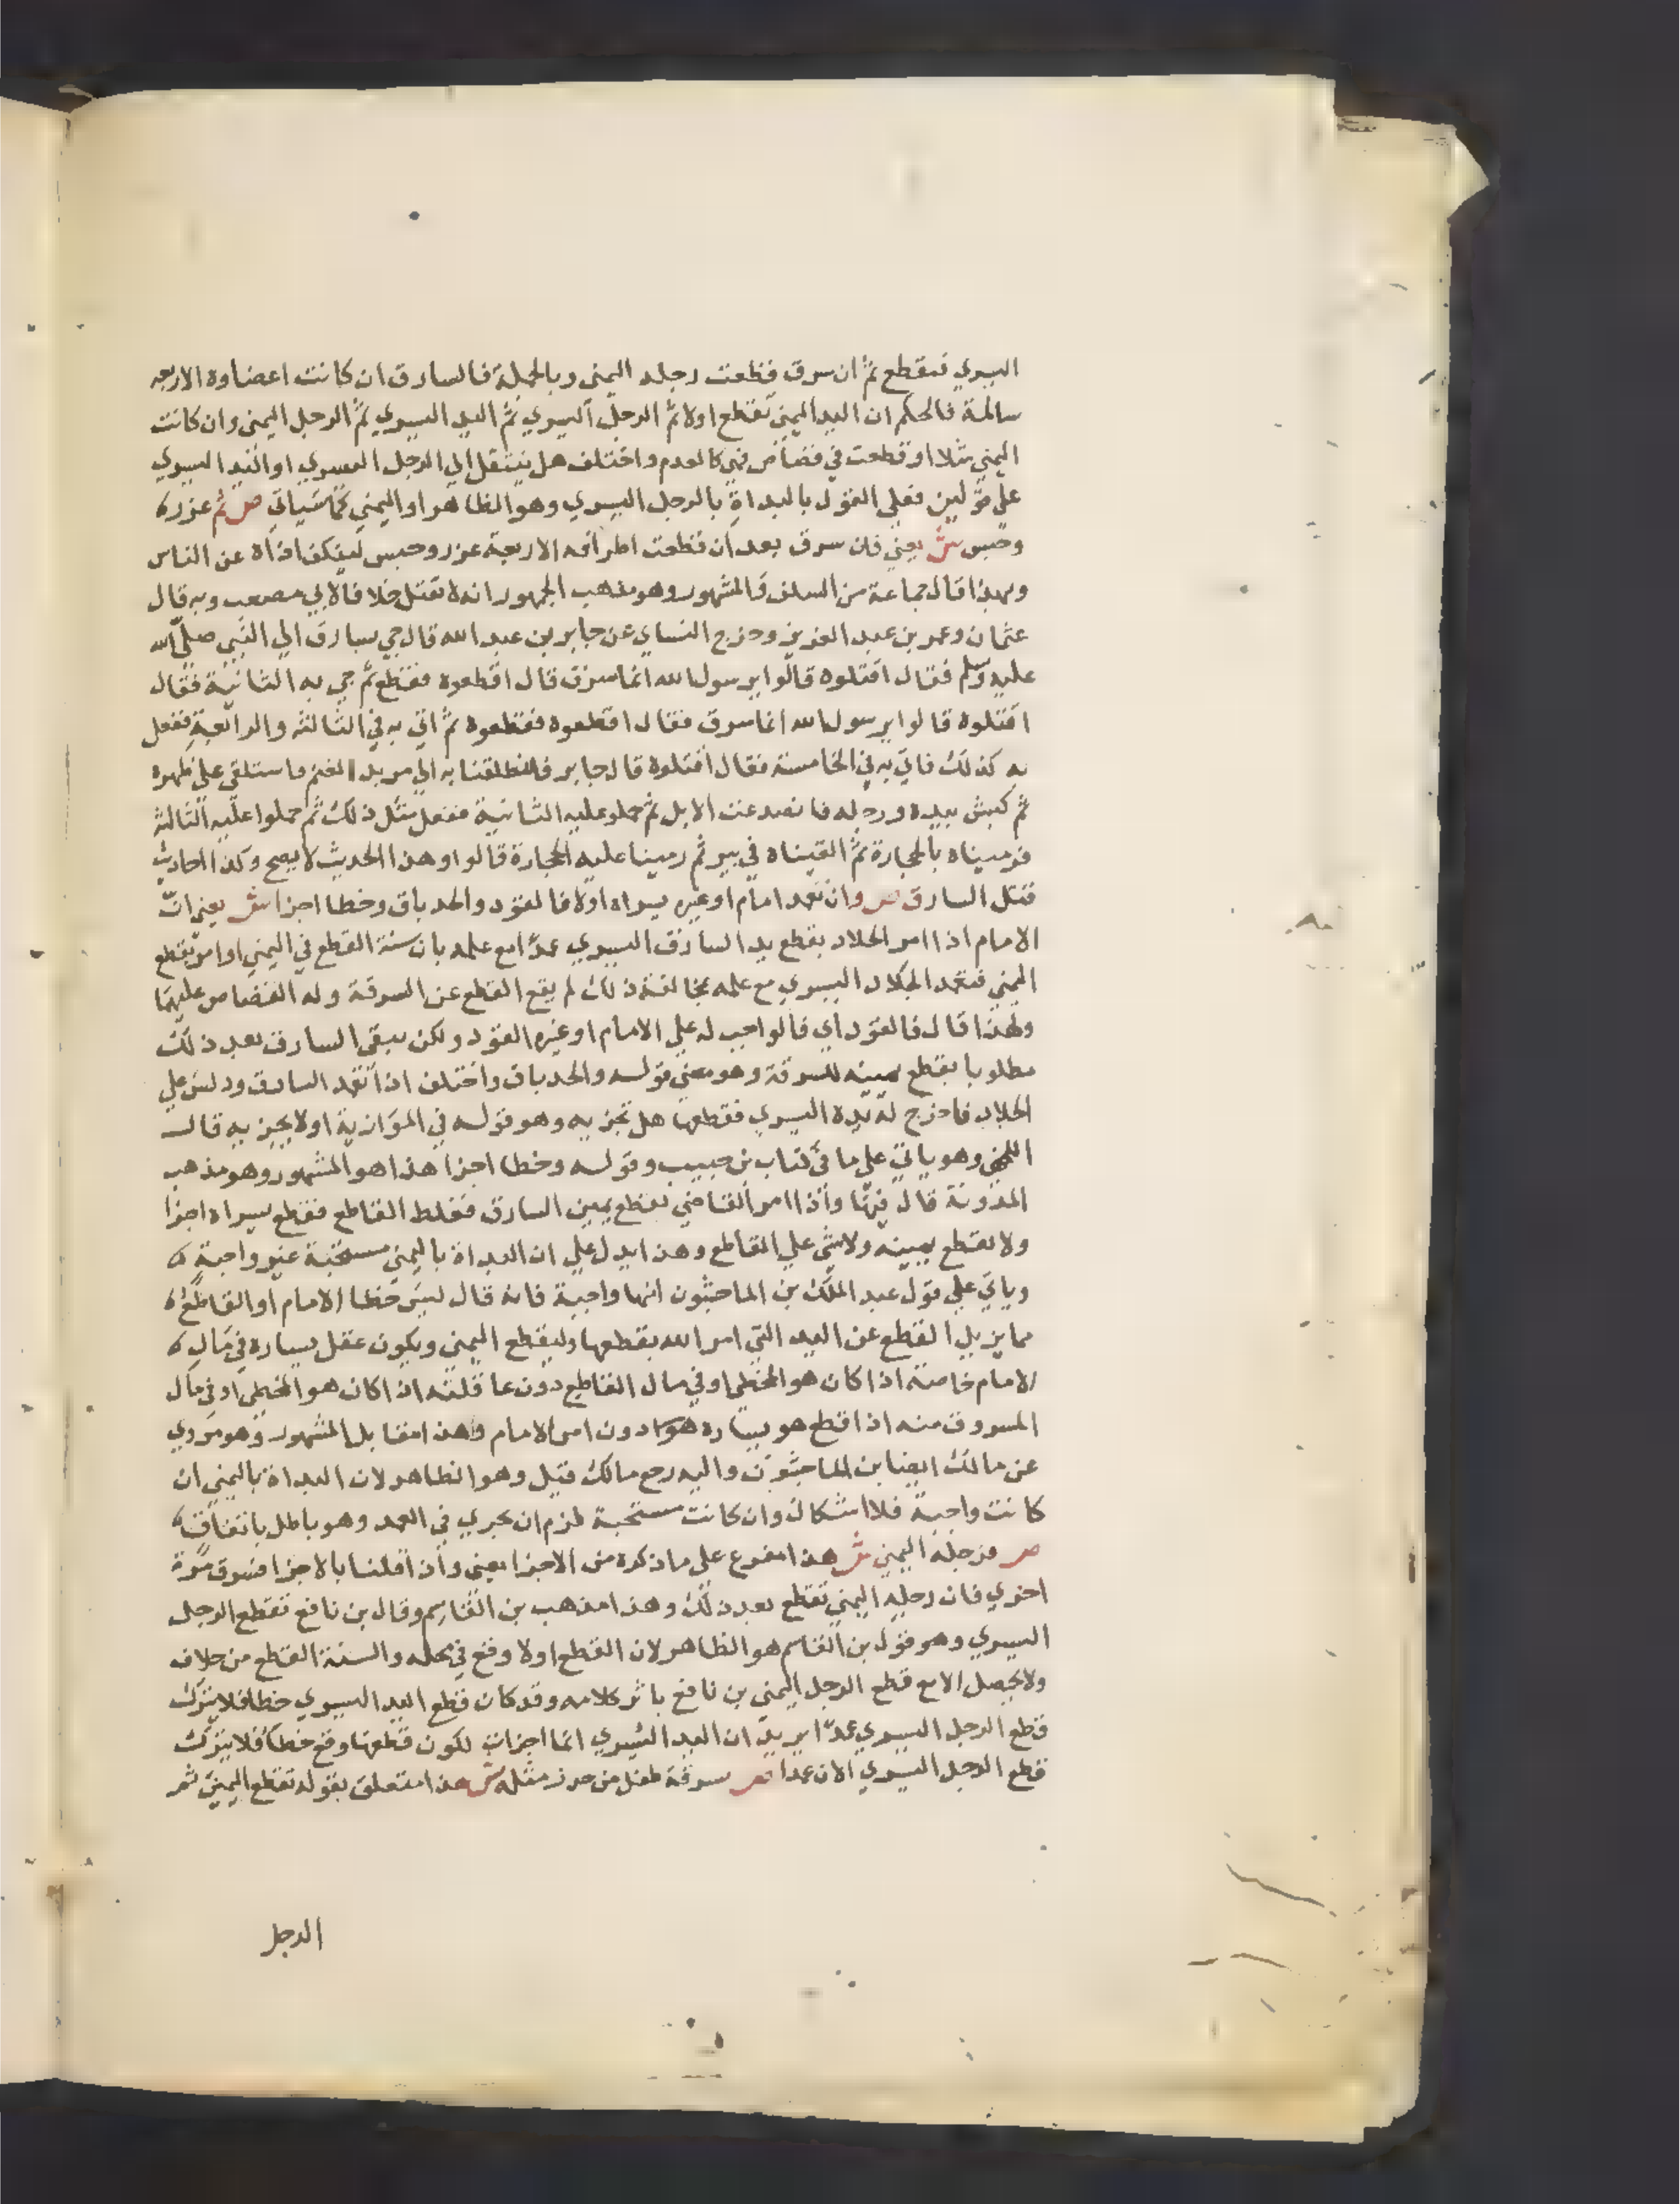 اليسري فتقطع ثم ان سرق قطعت رجله اليمني وبالجملة فالسارق ان كانت اعضاوه الاربعه
سالمة فالحكم ان اليد اليمني تقطع اولا ثم الرجل اليسري ثم اليد اليسري ثم الرجل اليمني وان كانت
اليمني شلا او قطعت في قصاص فهي كالعدم واختلف هل ينتقل الي الرجل اليسري او اليد اليسري
علي قولين فعلي القول بالبداة بالرجل اليسري وهو الظاهر او اليمني كما سياتي ص ثم عزر
وحبس ش يعني فان سرق بعد ان قطعت اطرافه الاربعة عزر وحبس لينكف اذاه عن الناس
وبهذا قال جماعة من السلف والمشهور وهو مذهب الجمهور انه لا يقتل خلافا لابي مصعب وبه قال
عثمان وعمر بن عبد العزيز وخرج النساي عن جابر بن عبد الله قال جي بسارق الي النبي صلي الله
عليه وسلم فقال اقتلوه قالوا يرسول الله انما سرق قال اقطعوه فقطع ثم جي به الثانية فقال
اقتلوه قالوا يرسول الله انما سرق فقال اقطعوه فقطعوه ثم اتي به في الثالثه والرابعة ففعل
به كذلك فاتي به في الخامسة فقال اقتلوه قال جابر فانطلقنا به الي مربد الغنم فاستلقي علي ظهره
ثم كبش بيده ورجله فانصدعت الابل ثم حملو عليه الثانية ففعل مثل ذلك ثم حملوا عليه الثالثه
فرميناه بالحجارة ثم القيناه في بير ثم رمينا عليه الحجارة قالوا وهذا الحديث لا يصح وكذا احاديث
قتل السارق ص وان تعمد امام او غيره يسراه اولا فالقود والحد باق وخطا اجزا ش يعني ان
الامام اذا امر الجلاد بقطع يد السارق اليسري عمدا مع علمه بان سنة القطع في اليمني او امر بقطع
اليمني فتعمد الجلاد اليسري مع علمه بمخالفة ذلك لم يقع القطع عن السرقة وله القصاص عليهما
ولهذا قال فالقود اي فالواجب له علي الامام او غيره القود ولكن يبقي السارق بعد ذلك
مطلوبا بقطع يمينه للسرقة وهو معني قوله والحد باق واختلف اذا تعمد السارق ودلس علي
الجلاد فاخرج له يده اليسري فقطعها هل تجزيه وهو قوله في الموازية اولا يجزيه قاله
اللخمي وهو ياتي علي ما في كتاب بن حبيب وقوله وخطا اجزا هذا هو المشهور وهو مذهب
المدونة قال فيها واذا امر القاضي بقطع يمين السارق فغلط القاطع فقطع يسراه اجزا
ولا تقطع يمينه ولا شي علي القاطع وهذا يدل علي ان البداة باليمني مستحبة غير واجبة
وياتي علي قول عبد الملك بن الماجشون انها واجبة فانه قال ليس خطا الامام او القاطع
مما يزيل القطع عن اليد التي امر الله بقطعها وليقطع اليمني ويكون عقل يساره في مال
الامام خاصة اذا كان هو المخطي او في مال القاطع دون عاقلته اذا كان هو المخطي او في مال
المسروق منه اذا قطع هو يساره هو دون امر الامام وهذا مقابل المشهور وهو مروي
عن مالك ايضا بن الماجشون واليه رجع مالك قيل وهو الظاهر لان البداة باليمني ان
كانت واجبة فلا اشكال وان كانت مستحبة لزم ان يجري في العمد وهو باطل باتفاق
ص ورجله اليمني ش هذا مفرع علي ما ذكره من الاجزا يعني واذا قلنا بالاجزا فسرق مرة
اخري فان رجله اليمني تقطع بعد ذلك وهذا مذهب بن القاسم وقال بن نافع تقطع الرجل
اليسري وهو قول بن القاسم هو الظاهر لان القطع اولا وقع في محله والسنة القطع من خلاف
ولا يحصل الا مع قطع الرجل اليمني بن نافع باثر كلامه وقد كان قطع اليد اليسري خطا فلا يترك
قطع الرجل اليسري عمدا يريد ان اليد اليسري انما اجزات لكون قطعها وقع خطا فلا يترك
قطع الرجل اليسري الان عمدا ص سرقة طفل من حرز مثله ش هذا متعلق بقوله تقطع اليمني ثم
الرجل